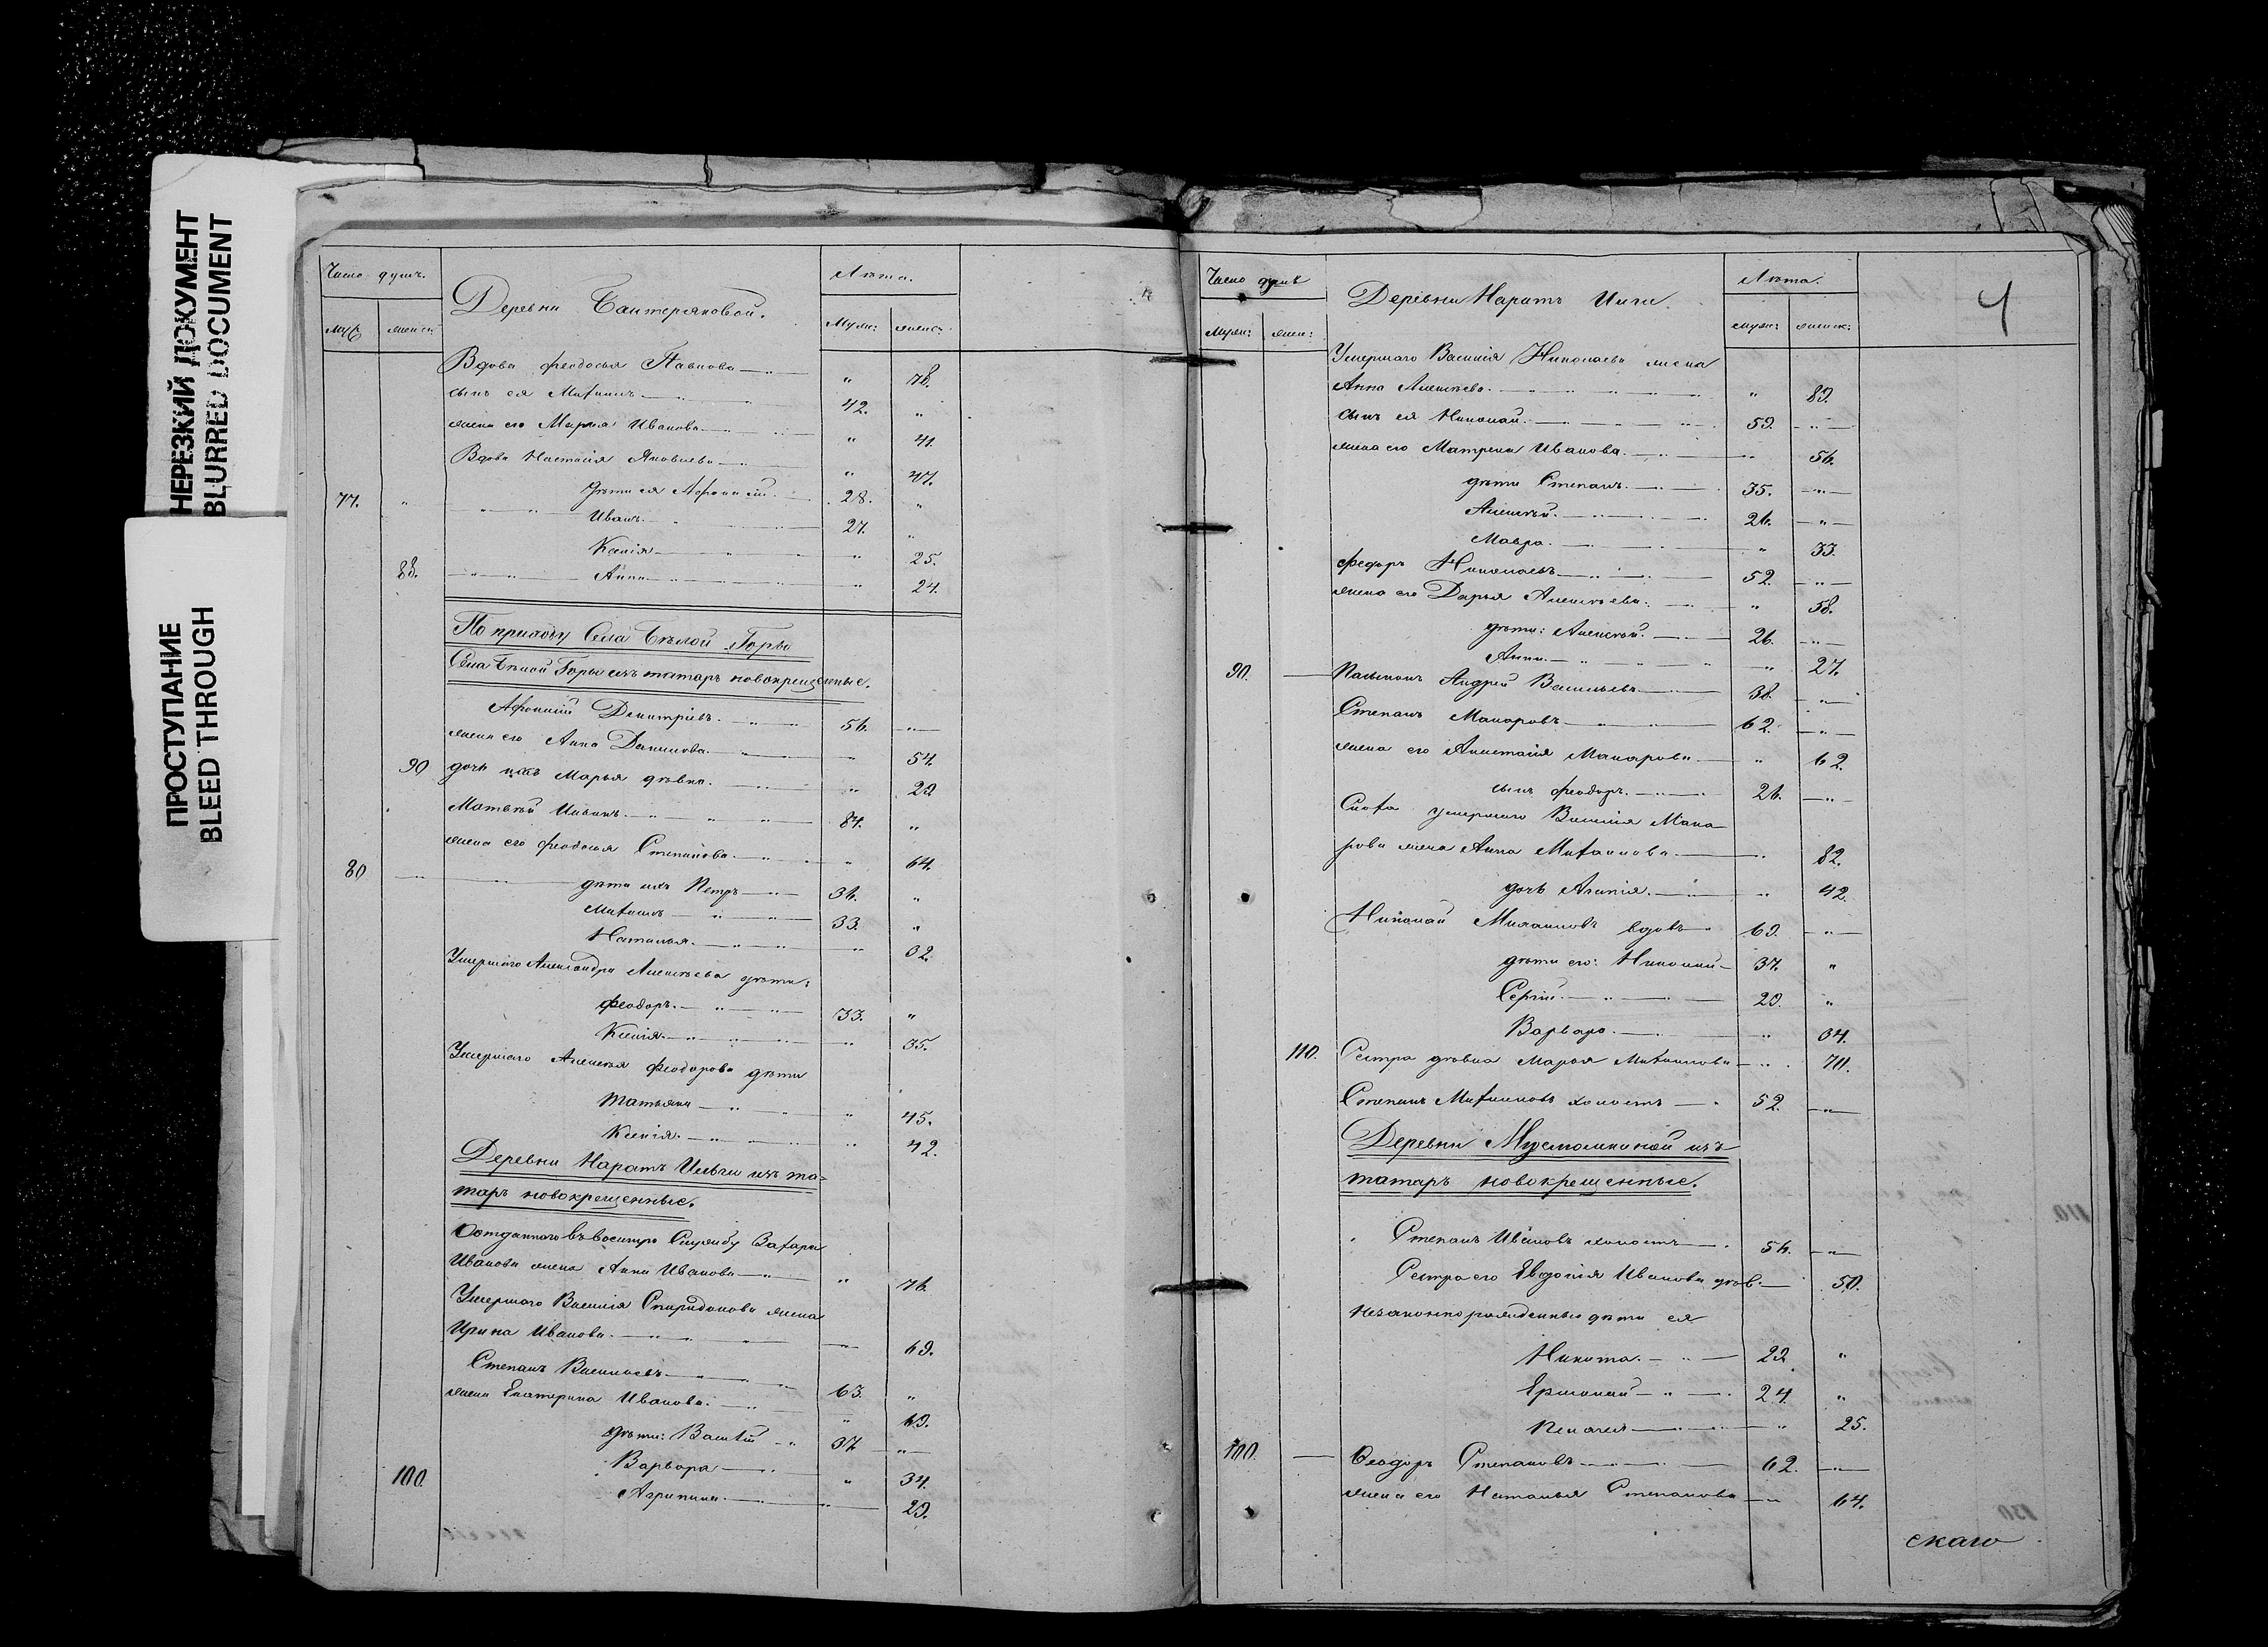 НЕРЕЗКИЙ ДОКУМЕНТ
BLURRED DOCUMENT
ПРОСТУПАНИЕ
BLEED THROUGH
Число душъ.
Лѣта.
Деревни Байтеряковой.
муж женск.
Мужс: женск:
Вдова Феодосья Павлова — " 78.
сынъ ея Михаилъ — 42. "
жена его Марья Иванова — " 41.
Вдова Настасія Яковлева — " 47.
77. " дѣти ея Афонасій. 28. "
Иванъ. 27. "
Ксенія — " 25.
88. Анна — " 24.
По приходу Села Бѣлой Горы
Села Бѣлой Горы изъ татаръ новокрещенные.
Афонасій Дмитріевъ. — 56. "
жена его Анна Данилова. — 54.
90 дочь ихъ Марья дѣвка. " 29
Матвѣй Ивановъ. — 84. "
жена его Феодосья Степанова. — " 64.
80 — дѣти ихъ Петръ — 36. "
Михаилъ — 33. "
Наталья. — " 32.
Умершаго Александра Алексѣева дѣти:
Феодоръ. — 33. "
Ксенія. — 35.
Умершаго Алексѣя Феодорова дѣти
Татьяна — " 45.
Ксенія. — " 42.
Деревни Наратъ Ильги изъ та=
таръ новокрещенные.
Отданного въ военную Службу Захара
Иванова жена Анна Иванова — " 76.
Умершаго Василія Спиридонова жена
Ирина Иванова. — 69.
Степанъ Васильевъ — 63. "
жена Екатерина Иванова. — " 69.
дѣти: Василій — 37 "
Варвара — " 34.
100. Агрипина. — 29.
4
Число душъ
Деревни Наратъ Илги
Лѣта.
Мужс: жен:
мужс: женск:
Умершаго Василія Николаева жена
Анна Алексѣева. — " 89.
сынъ ея Николай. — 59. — " —
жена его Матрена Иванова. — " 56.
дѣти Степанъ. — 35. — " —
Алексѣй. — 26. — " —
Мавра. — " 33.
Федоръ Николаевъ — 52. — " —
жена его Дарья Алексѣева: — " 58.
дѣти: Алексѣй. — 26. — " —
Анна. — " 27.
90. — Андрей Васильевъ — 38. — " —
Степанъ Макаровъ — 62. — " —
жена его Анастасія Макарова — " 62.
сынъ Феодоръ. — 26. — " —
Сноха умершаго Василія Мака
рова жена Анна Михайлова — " 82.
дочь — " 42.
Николай Михаиловъ вдовъ — 69. — " —
дѣти его: Николай — 37. "
Сергій — 29. "
Варвара. — " 34.
110. Сестра дѣвка Марья Михаилова — " 70.
Степанъ Михаиловъ холостъ — 52. — " —
Деревни Муслюмкиной изъ
татаръ новокрещенные.
Степанъ Ивановъ холостъ — 56. — " —
Сестра его Евдокія Иванова дѣв. — 50.
Незаконнорожденные дѣти ея
Никита. — 29. "
Ермолай — 24. "
Пелагея — " 25.
100. — Феодоръ Степановъ — 62. — " —
жена его Наталья Степанова — " 64.
скаго